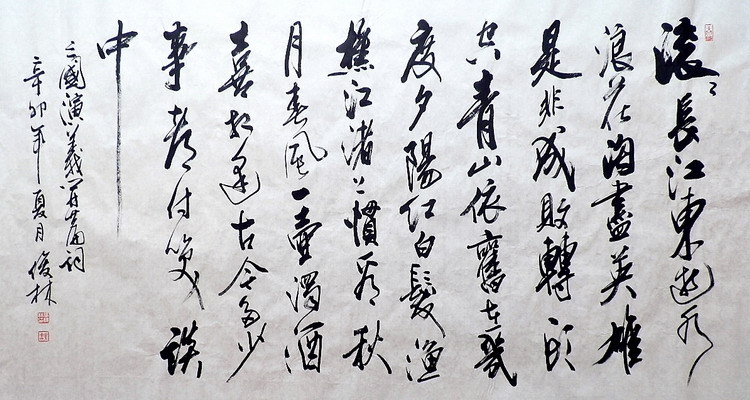 滚〻長江東逝水
浪花淘盡英雄
是非成敗轉頭
空青山依舊在幾
度夕陽紅白髮漁
樵江渚上慣看秋
月春風一壺濁酒
喜相逢古今多少
事都付笑談
中
三國演義開篇詞
辛卯年夏月俊林